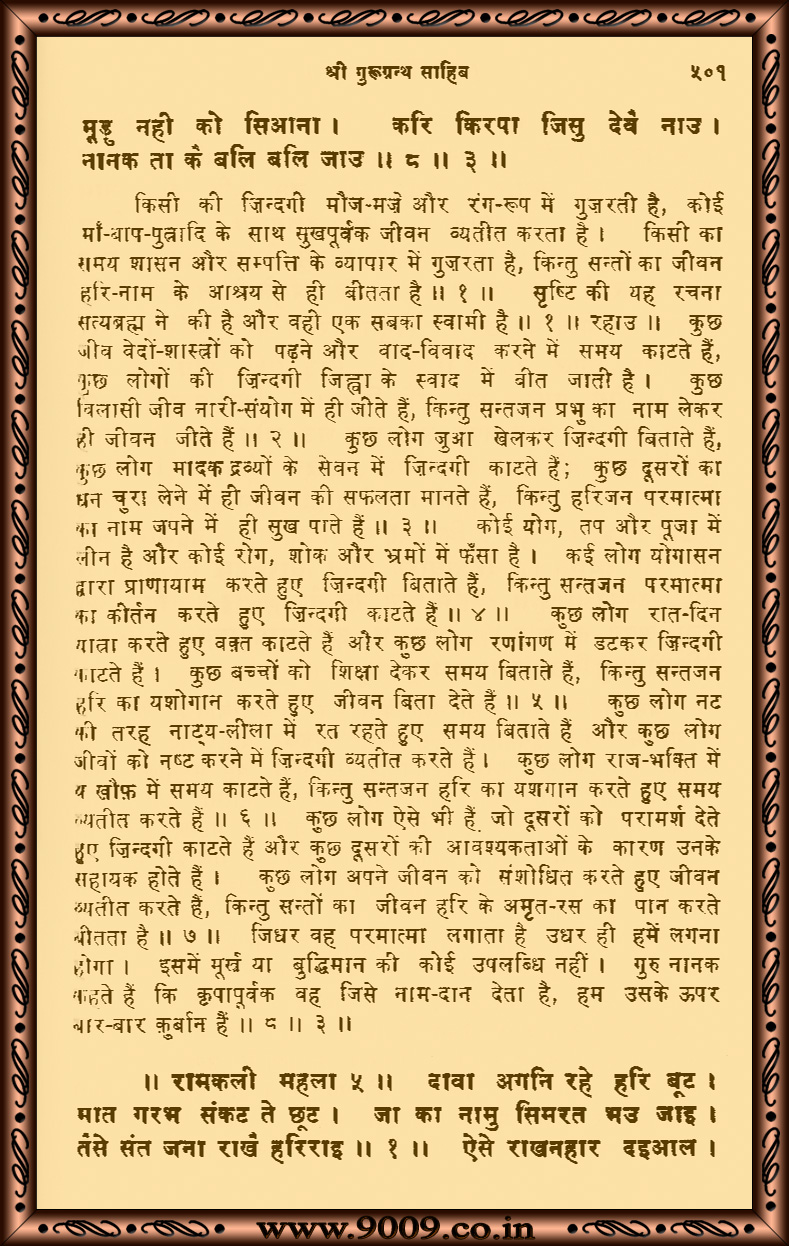 श्री गुरूग्रन्थ साहिब ५०१
मूड़ु नही को सिआना। करि किरपा जिसु देवै नाउ।
नानक ता कै बलि बलि जाउ॥ ८॥ ३॥
किसी की ज़िन्दगी मौज-मज़े और रंग-रूप में गुज़रती है, कोई
माँ-बाप-पुत्रादि के साथ सुखपूर्वक जीवन व्यतीत करता है। किसी का
समय शासन और सम्पत्ति के व्यापार में गुज़रता है, किन्तु सन्तों का जीवन
हरि-नाम के आश्रय से ही बीतता है॥ १॥ सृष्टि की यह रचना
सत्यब्रह्म ने की है और वही एक सबका स्वामी है॥ १॥ रहाउ॥ कुछ
जीव वेदों-शास्त्रों को पढ़ने और वाद-विवाद करने में समय काटते हैं,
कुछ लोगों की ज़िन्दगी जिह्वा के स्वाद में बीत जाती है। कुछ
विलासी जीव नारी-संयोग में ही जीते हैं, किन्तु सन्तजन प्रभु का नाम लेकर
ही जीवन जीते हैं॥ २॥ कुछ लोग जुआ खेलकर ज़िन्दगी बिताते हैं,
कुछ लोग मादक द्रव्यों के सेवन में ज़िन्दगी काटते हैं; कुछ दूसरों का
धन चुरा लेने में ही जीवन की सफलता मानते हैं, किन्तु हरिजन परमात्मा
का नाम जपने में ही सुख पाते हैं॥ ३॥ कोई योग, तप और पूजा में
लीन है और कोई रोग, शोक और भ्रमों में फँसा है। कई लोग योगासन
द्वारा प्राणायाम करते हुए ज़िन्दगी बिताते हैं, किन्तु सन्तजन परमात्मा
का कीर्तन करते हुए ज़िन्दगी काटते हैं॥ ४॥ कुछ लोग रात-दिन
यात्रा करते हुए वक़्त काटते हैं और कुछ लोग रणांगण में डटकर ज़िन्दगी
काटते हैं। कुछ बच्चों को शिक्षा देकर समय बिताते हैं, किन्तु सन्तजन
हरि का यशोगान करते हुए जीवन बिता देते हैं॥ ५॥ कुछ लोग नट
की तरह नाट्य-लीला में रत रहते हुए समय बिताते हैं और कुछ लोग
जीवों को नष्ट करने में ज़िन्दगी व्यतीत करते हैं। कुछ लोग राज-भक्ति में
य खौफ़ में समय काटते हैं, किन्तु सन्तजन हरि का यशगान करते हुए समय
व्यतीत करते हैं॥ ६॥ कुछ लोग ऐसे भी हैं जो दूसरों को परामर्श देते
हुए ज़िन्दगी काटते हैं और कुछ दूसरों की आवश्यकताओं के कारण उनके
सहायक होते हैं। कुछ लोग अपने जीवन को संशोधित करते हुए जीवन
व्यतीत करते हैं, किन्तु सन्तों का जीवन हरि के अमृत-रस का पान करते
बीतता है॥ ७॥ जिधर वह परमात्मा लगाता है उधर ही हमें लगना
होगा। इसमें मूर्ख या बुद्धिमान की कोई उपलब्धि नहीं। गुरु नानक
कहते हैं कि कृपापूर्वक वह जिसे नाम-दान देता है, हम उसके ऊपर
बार-बार क़ुर्बान हैं॥ ८॥ ३॥
॥ रामकली महला ५॥ दावा अगनि रहे हरि बूट।
मात गरभ संकट ते छूट। जा का नामु सिमरत भउ जाइ।
तैसे संत जना राखै हरिराइ॥ १॥ ऐसे राखनहार दइआल।
www.9009.co.in